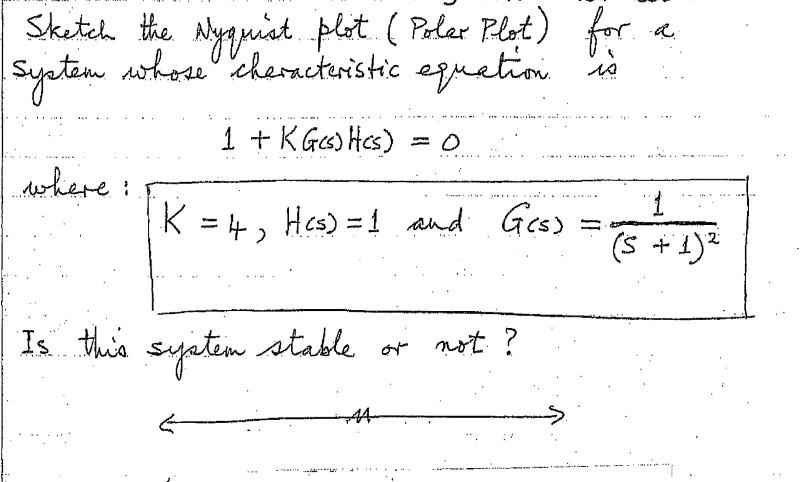 Sketch the Nyquist plot ( Polar Plot) for a
system whose characteristic equation is
1 + K G(s) H(s) = 0
where :
K = 4 , H(s) = 1 and G(s) = 1 / (s + 1)²
Is this system stable or not ?